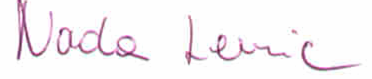 Nada Lemic